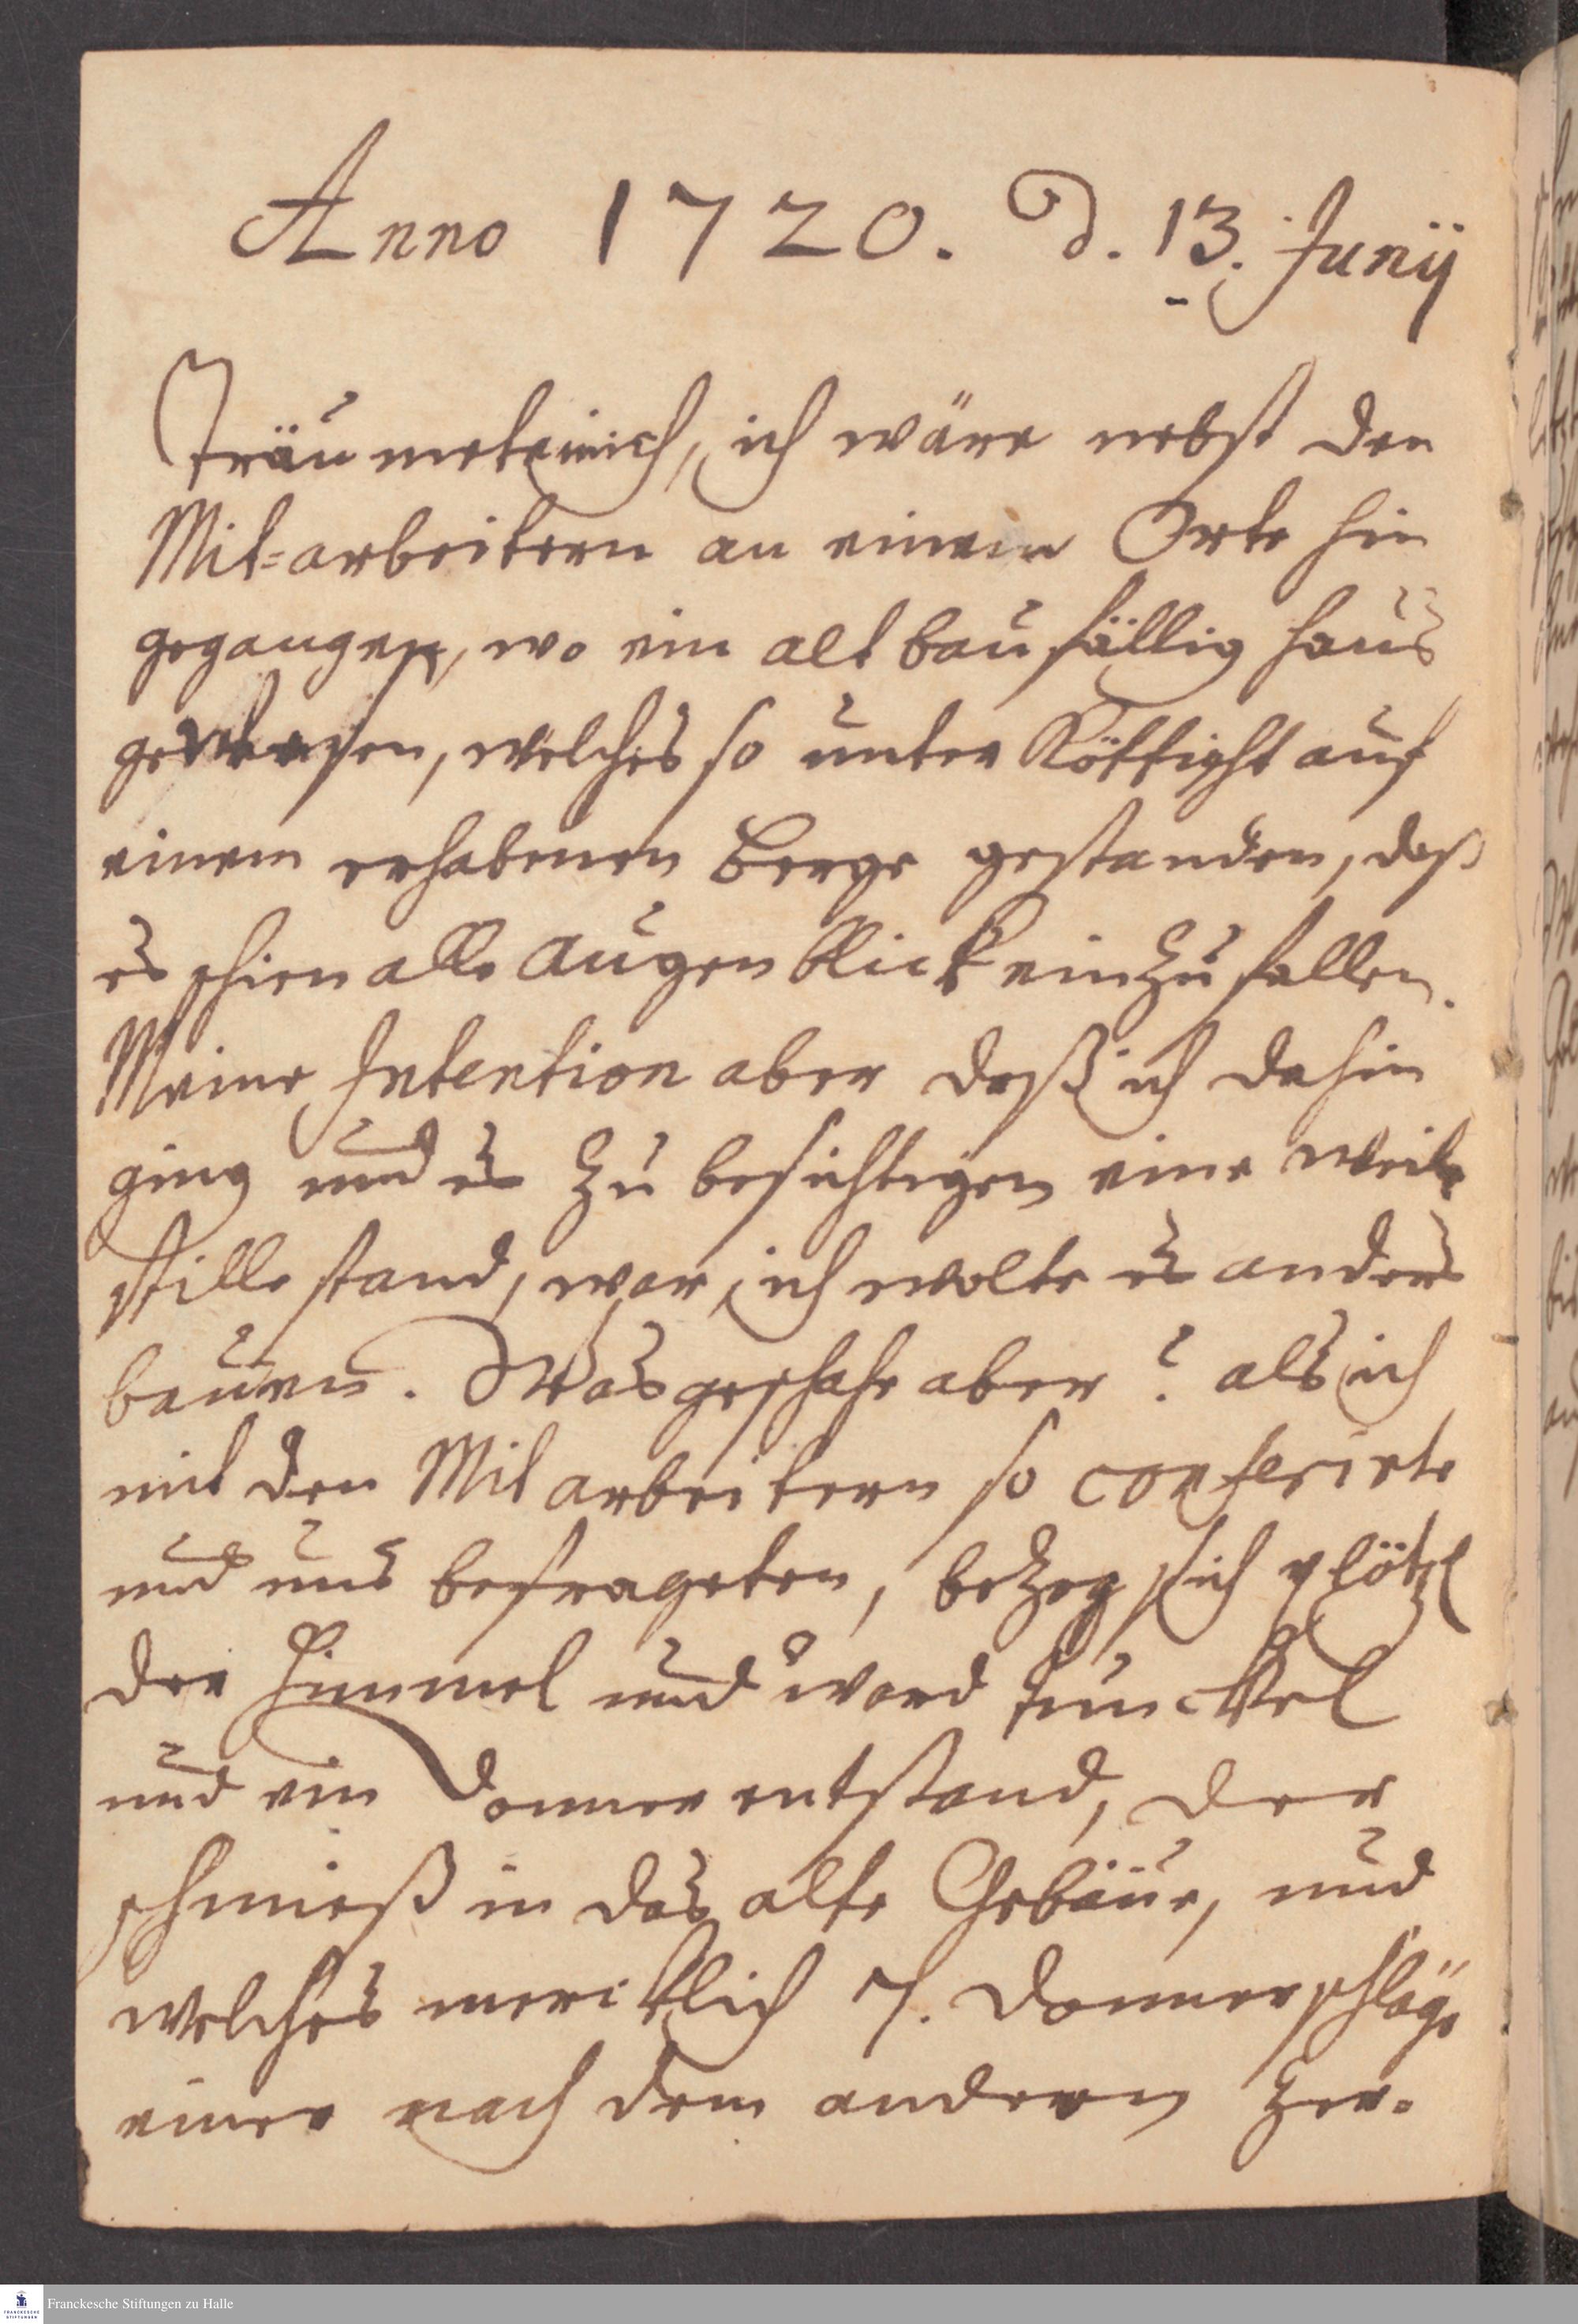 Anno 1720. d. 13. Junij
Träumete mich, ich wäre nebst den
Mit-arbeitern an einem Orte hin
gegangen, wo ein alt baufällig haus
gewesen, welches so unter auf
einem erhabenen Berge gestanden, daß
es schien alle augenblick einzufallen.
Meine Intention aber daß ich dahin
ging und es zu besichtigen eine weile
stille stand, war, ich wolte es anders
bauen. Was geschahe aber? als ich
mit den Mitarbeitern so conferirte
und uns befrageten, bezog sich plötzl
der Himmel und ward tunckel
und ein Donner entstand, der
schmieß in das alte Gebäue, und
welches mercklich 7. Donnerschläge
einer nach dem andern zer-
Franckesche Stiftungen zu Halle